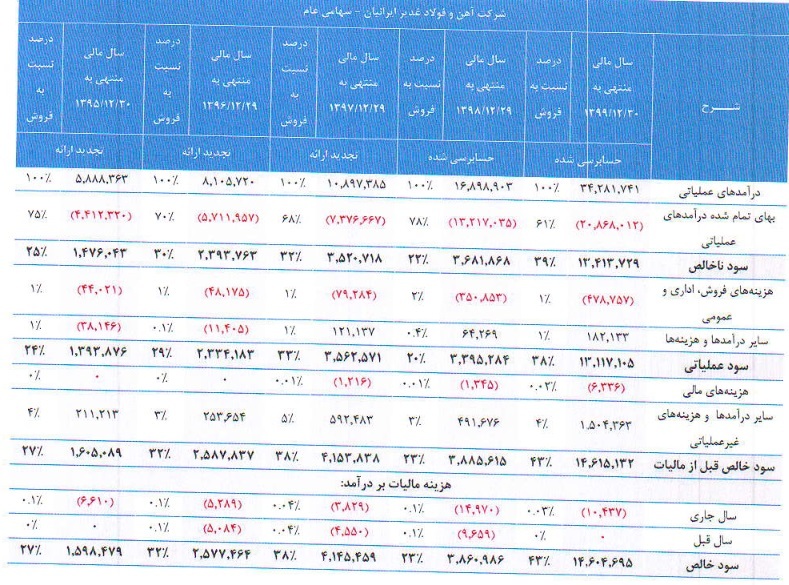 شرکت آهن و فولاد غدیر ایرانیان - سهامی عام
شـــرح
سال مالی
منتهی به
۱۳۹۹/۱۲/۳۰
درصد
نسبت به
فروش
سال مالی
منتهی به
۱۳۹۸/۱۲/۲۹
درصد
نسبت به
فروش
سال مالی
منتهی به
۱۳۹۷/۱۲/۲۹
درصد
نسبت
به
فروش
سال مالی
منتهی به
۱۳۹۶/۱۲/۲۹
درصد
نسبت
به
فروش
سال مالی
منتهی به
۱۳۹۵/۱۲/۳۰
درصد
نسبت
به
فروش
حسابرسی شده حسابرسی شده تجدید ارائه تجدید ارائه تجدید ارائه
درآمدهای عملیاتی ۳۴,۲۸۱,۷۴۱ ۱۰۰٪ ۱۶,۸۹۸,۹۰۳ ۱۰۰٪ ۱۰,۸۹۷,۳۸۵ ۱۰۰٪ ۸,۱۰۵,۷۲۰ ۱۰۰٪ ۵,۸۸۸,۳۶۳ ۱۰۰٪
بهای تمام شده درآمدهای
عملیاتی (۲۰,۸۶۸,۰۱۲) ۶۱٪ (۱۳,۲۱۷,۰۳۵) ۷۸٪ (۷,۳۷۶,۶۶۷) ۶۸٪ (۵,۷۱۱,۹۵۷) ۷۰٪ (۴,۴۱۲,۳۲۰) ۷۵٪
سود ناخالص ۱۳,۴۱۳,۷۲۹ ۳۹٪ ۳,۶۸۱,۸۶۸ ۲۲٪ ۳,۵۲۰,۷۱۸ ۳۲٪ ۲,۳۹۳,۷۶۳ ۳۰٪ ۱,۴۷۶,۰۴۳ ۲۵٪
هزینه‌های فروش، اداری و
عمومی (۴۷۸,۷۵۷) ۱٪ (۳۵۰,۸۵۳) ۲٪ (۷۹,۲۸۴) ۱٪ (۴۸,۱۷۵) ۱٪ (۴۴,۰۲۱) ۱٪
سایر درآمدها و هزینه‌ها ۱۸۲,۱۳۳ ۱٪ ۶۴,۲۶۹ ۰.۴٪ ۱۲۱,۱۳۷ ۱٪ (۱۱,۴۰۵) ۰.۱٪ (۳۸,۱۴۶) ۱٪
سود عملیاتی ۱۳,۱۱۷,۱۰۵ ۳۸٪ ۳,۳۹۵,۲۸۴ ۲۰٪ ۳,۵۶۲,۵۷۱ ۳۳٪ ۲,۳۳۴,۱۸۳ ۲۹٪ ۱,۳۹۳,۸۷۶ ۲۴٪
هزینه‌های مالی (۶,۳۳۶) ۰.۰۲٪ (۱,۳۴۵) ۰.۰۱٪ (۱,۲۱۶) ۰.۰۱٪ ۰ ۰٪ ۰ ۰٪
سایر درآمدها و هزینه‌های
غیرعملیاتی ۱,۵۰۴,۳۶۳ ۴٪ ۴۹۱,۶۷۶ ۳٪ ۵۹۲,۴۸۳ ۵٪ ۲۵۳,۶۵۴ ۳٪ ۲۱۱,۲۱۳ ۴٪
سود خالص قبل از مالیات ۱۴,۶۱۵,۱۳۲ ۴۳٪ ۳,۸۸۵,۶۱۵ ۲۳٪ ۴,۱۵۳,۸۳۸ ۳۸٪ ۲,۵۸۷,۸۳۷ ۳۲٪ ۱,۶۰۵,۰۸۹ ۲۷٪
هزینه مالیات بر درآمد:
سال جاری (۱۰,۴۳۷) ۰.۰۳٪ (۱۴,۹۷۰) ۰.۱٪ (۳,۸۲۹) ۰.۰۴٪ (۵,۲۸۹) ۰.۱٪ (۶,۶۱۰) ۰.۱٪
سال قبل ۰ ۰٪ (۹,۶۵۹) ۰.۱٪ (۴,۵۵۰) ۰.۰۴٪ (۵,۰۸۴) ۰.۱٪ ۰ ۰٪
سود خالص ۱۴,۶۰۴,۶۹۵ ۴۳٪ ۳,۸۶۰,۹۸۶ ۲۳٪ ۴,۱۴۵,۴۵۹ ۳۸٪ ۲,۵۷۷,۴۶۴ ۳۲٪ ۱,۵۹۸,۴۷۹ ۲۷٪